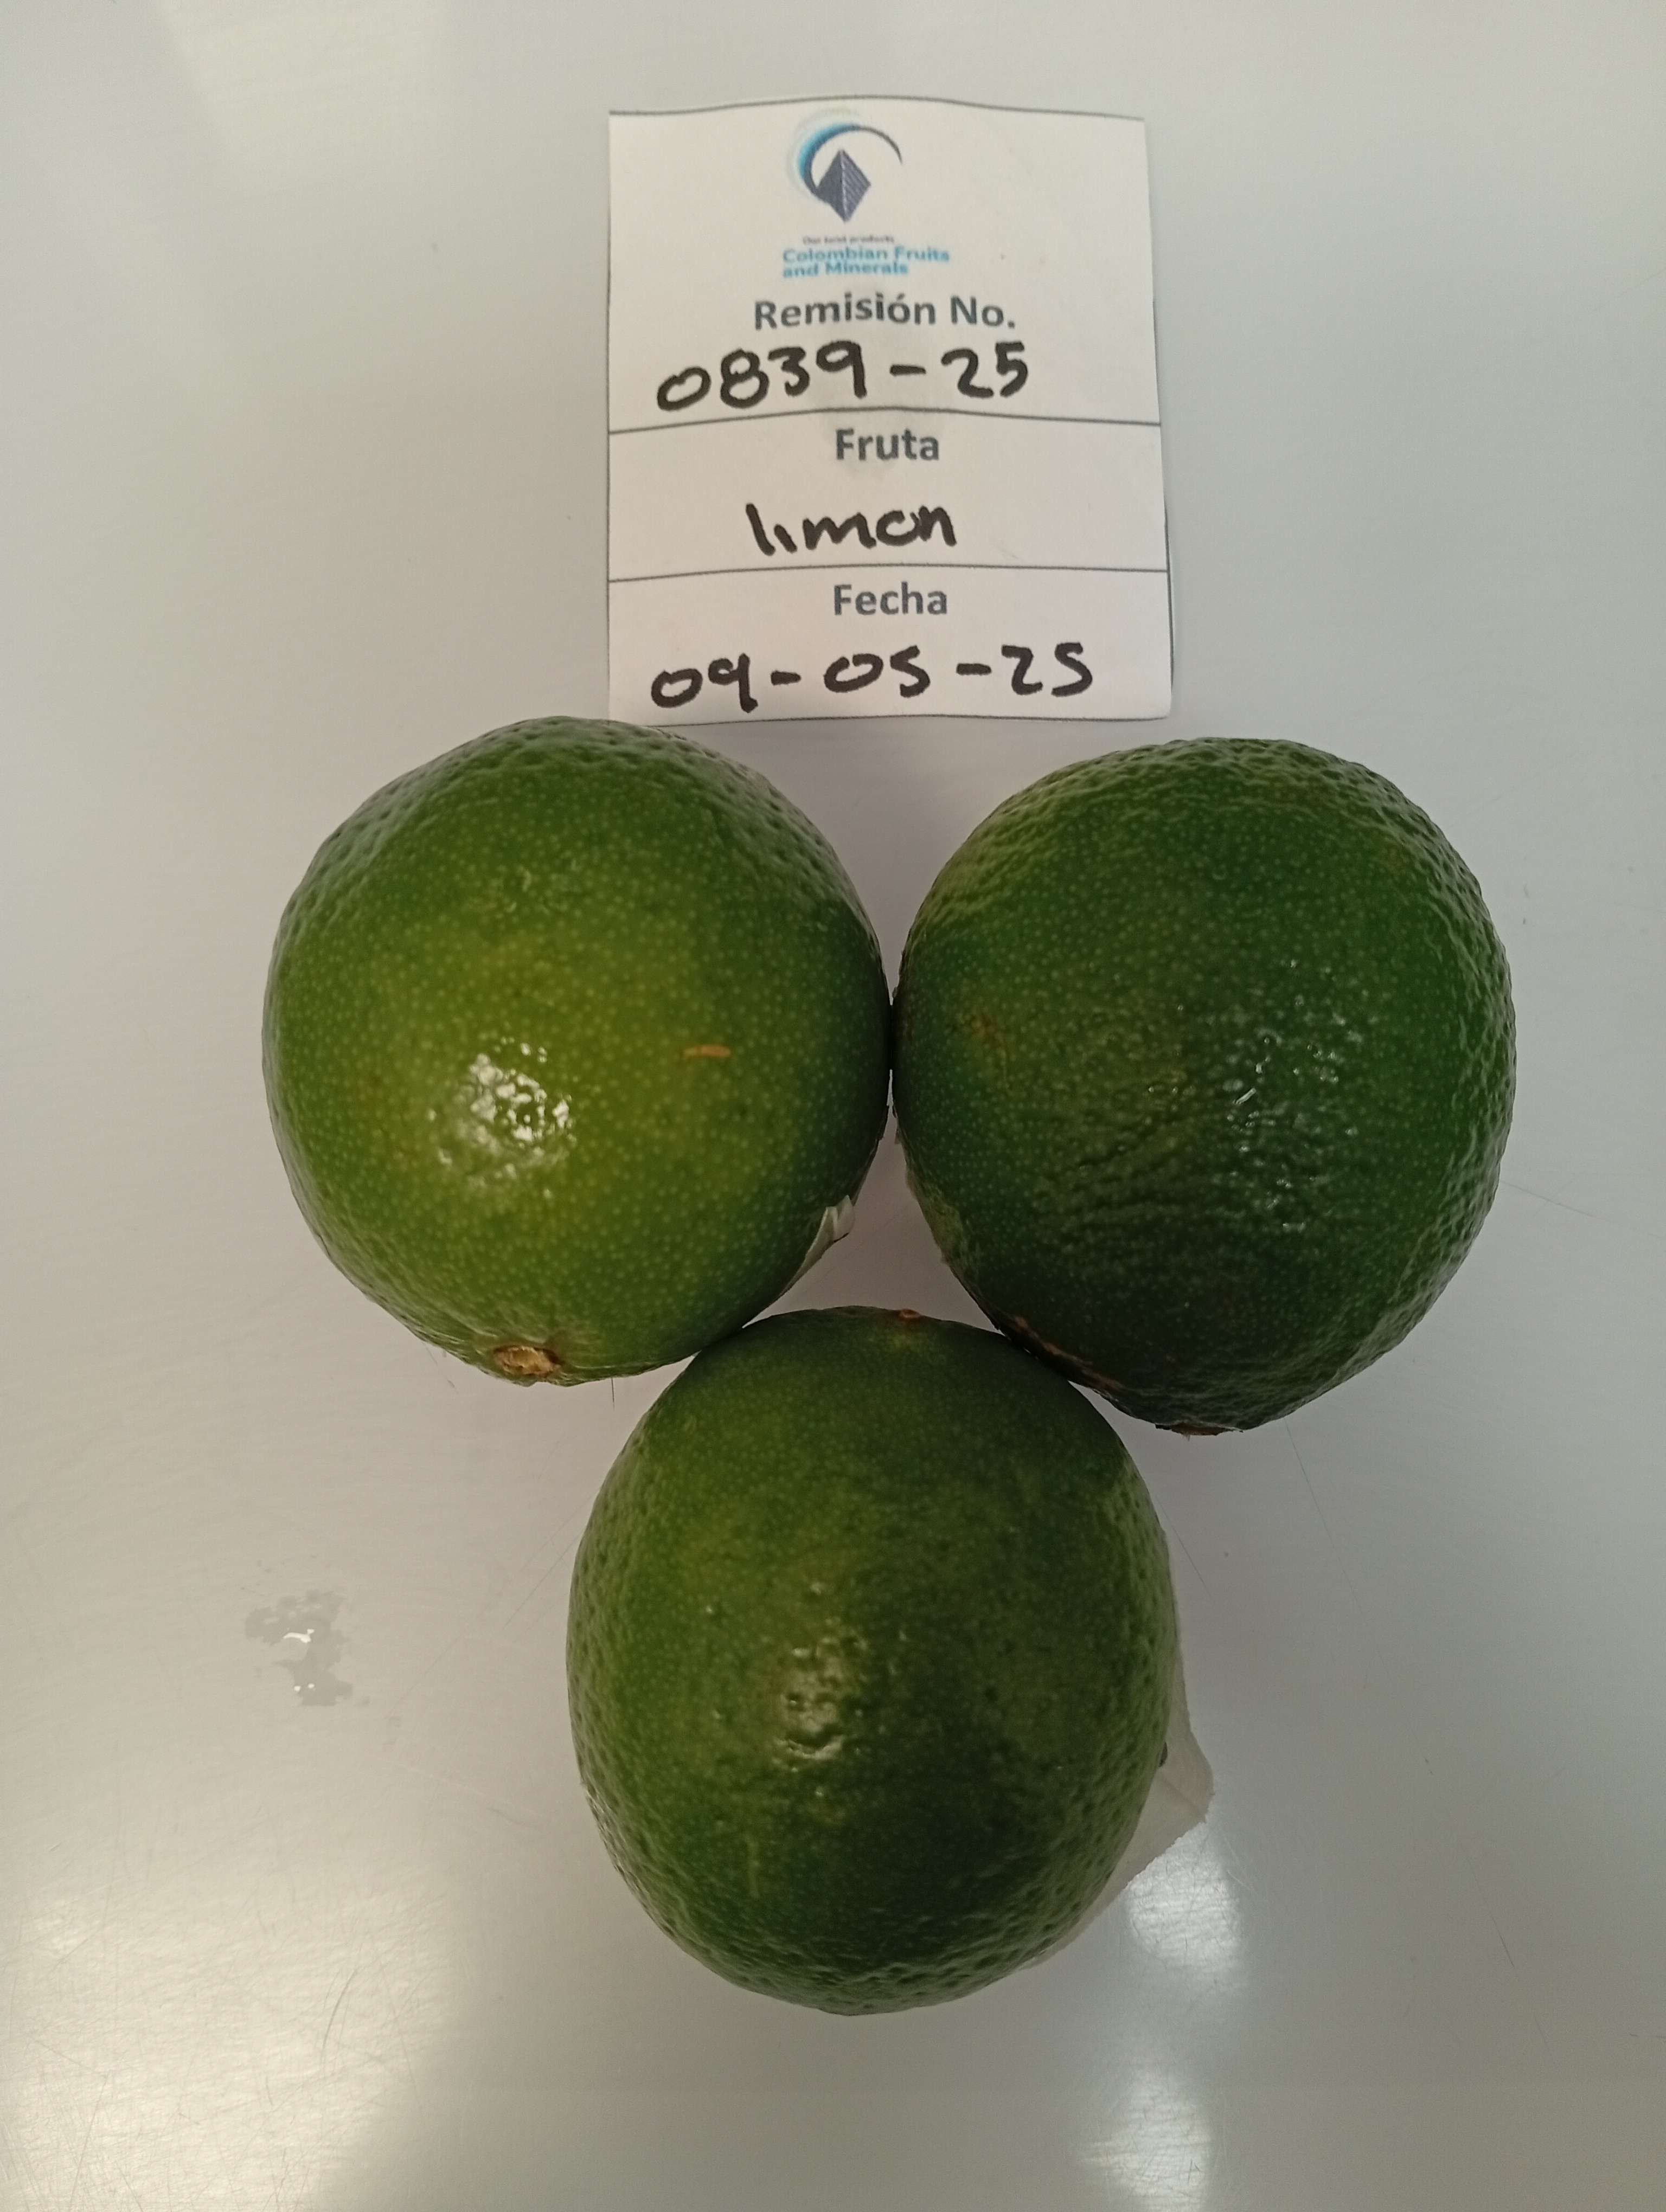 Our best products
Colombian Fruits
and Minerals
Remisión No.
0839-25
Fruta
limon
Fecha
09-05-25